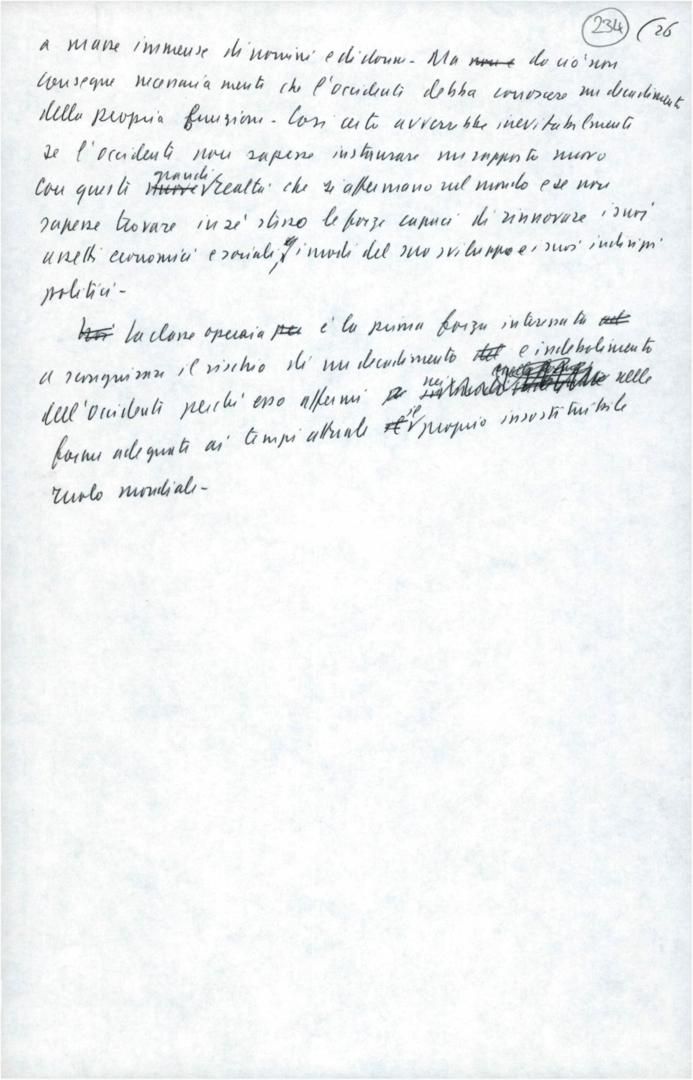 234 (26
a masse immense di uomini e di donne. Ma non è da ciò non
consegue necessariamente che l'occidente debba conoscere un decadimento
della propria funzione. Così certo avverrebbe inevitabilmente
se l'occidente non sapesse instaurare un rapporto nuovo
con queste nuove grandi realtà che si affermano nel mondo e se non
sapesse trovare in sé stesso le forze capaci di rinnovare i suoi
assetti economici e sociali, i modi del suo sviluppo e i suoi indirizzi
politici.
Noi la classe operaia per è la prima forza interessata ad
a scongiurare il rischio di un decadimento del e indebolimento
dell'Occidente perché esso affermi nelle
forme adeguate ai tempi attuale il proprio insostituibile
ruolo mondiale.